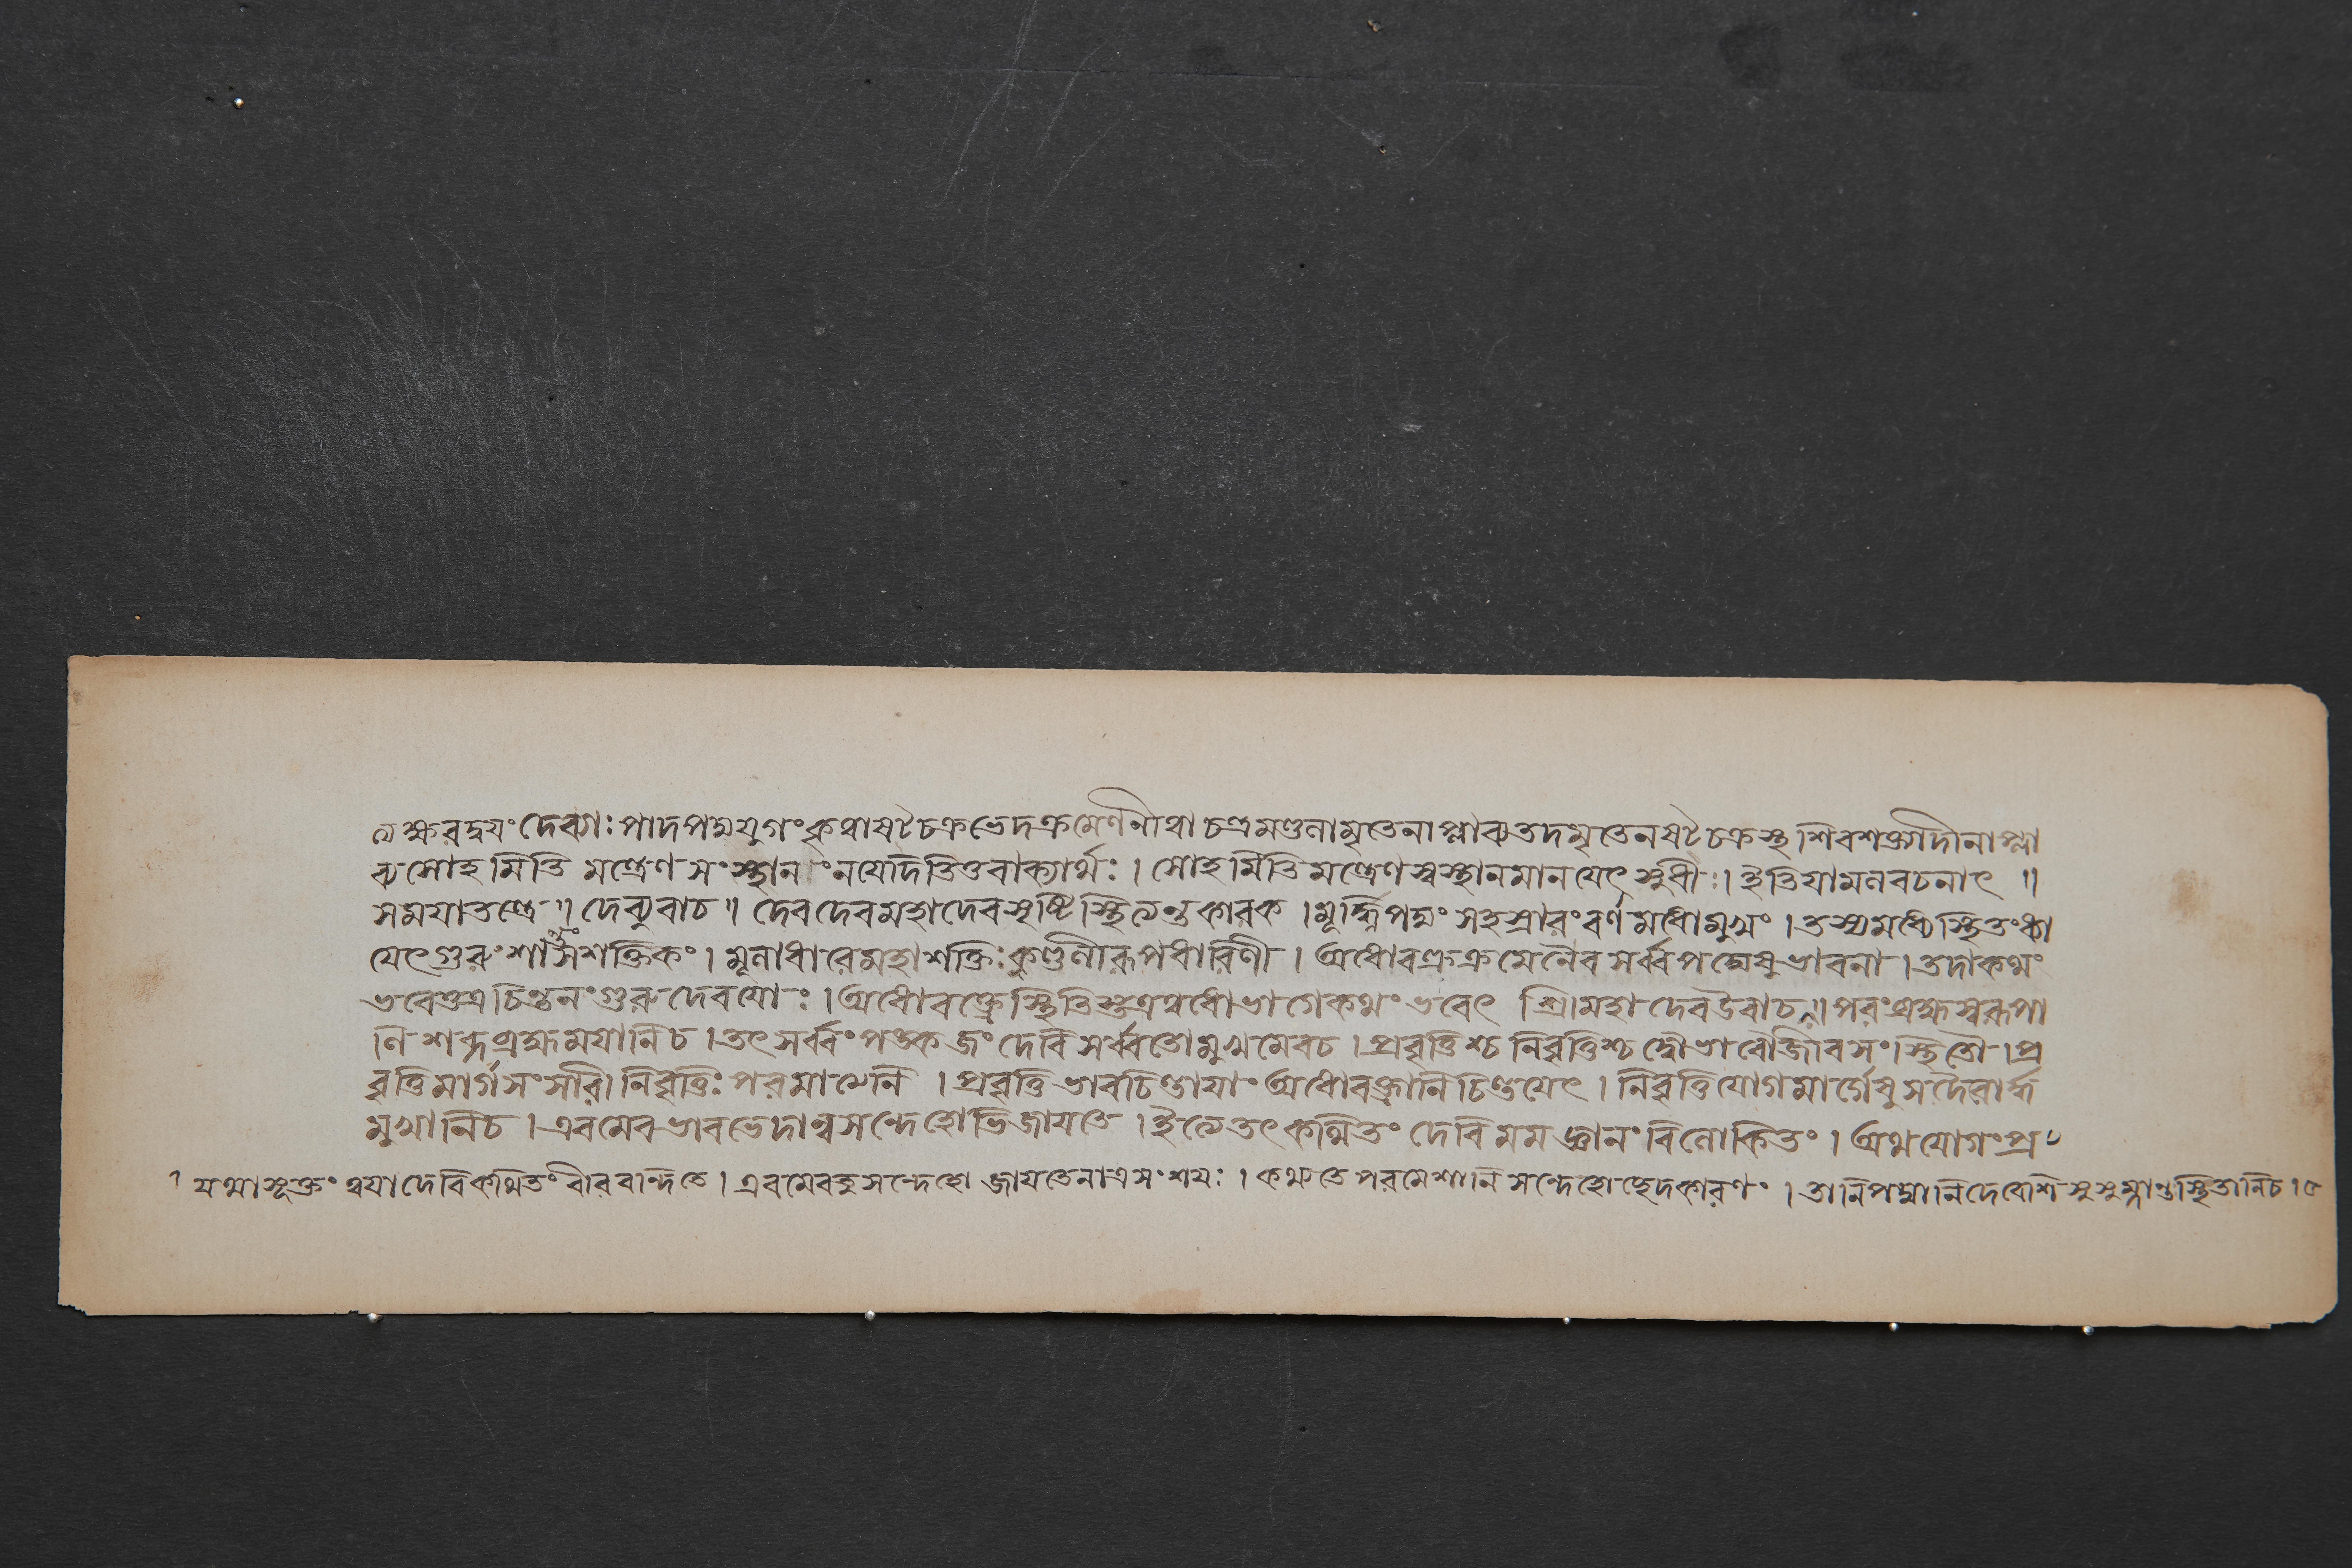 ত্যক্ষরদ্বয়ং দেব্যাঃ পাদপদ্মযুগং কৃত্বা ষট্চক্রভেদক্রমেণ নীত্বা চন্দ্রমণ্ডলামৃতেনাপ্লাব্য তদমৃতেন ষট্চক্রস্থ শিবশক্ত্যাদীনাপ্লা
ব্য সোহমিতি মন্ত্রেণ সংস্থানং নয়েদিতি তু বাক্যার্থঃ । সোহমিতি মন্ত্রেণ স্বস্থানমানয়েৎ সুধীঃ । ইতি যামলবচনাৎ ॥
সময়াতন্ত্রে ॥ দেব্যুবাচ ॥ দেবদেব মহাদেব সৃষ্টিস্থিত্যন্তকারক । মূর্দ্ধ্নি পদ্মং সহস্রারং বর্ণমধোমুখং । তস্য মধ্যে স্থিতং ধ্যা
য়েৎ গুরুং শান্তং সশক্তিকং । মূলাধারে মহাশক্তিঃ কুণ্ডলীরূপধারিণী । অধোবক্ত্রক্রমেনৈব সর্ব্বপদ্মেষু ভাবনা । তদা কথং
ভবেত্তত্র চিন্তনং গুরুদেবয়োঃ । অধোবক্ত্রে স্থিতিস্তত্র ত্বধোভাগে কথং ভবেৎ শ্রীমহাদেব উবাচ ॥ পরং ব্রহ্মস্বরূপা
নি শব্দব্রহ্মময়ানি চ । তৎ সর্ব্বং পঙ্কজং দেবি সর্ব্বতোমুখমেব চ । প্রবৃত্তিশ্চ নিবৃত্তিশ্চ দ্বৌ ভাবৌ জীবসংস্থিতৌ । প্র
বৃত্তিমার্গসংসারী নিবৃত্তিঃ পরমাত্মনি । প্রবৃত্তিভাবচিন্তায়াং অধোবক্ত্রানি চিন্তয়েৎ । নিবৃত্তিযোগমার্গেষু সদৈবোর্দ্ধ
মুখানি চ । এবমেব ভাবভেদান্ন সন্দেহোভিজায়তে । ইত্যেতৎ কথিতং দেবি মম জ্ঞানং বিলোকিতং । অথ যোগং প্র
যথাসূক্তং ত্বয়া দেবি কথিতং বীরবন্দিতে । এবমেবতু সন্দেহো জায়তে নাত্র সংশয়ঃ । কথ্যতে পরমেশানি সন্দেহোচ্ছেদকারণং । তানি পদ্মানি দেবেশি সুষুম্নান্তস্থিতানি চ । ৫